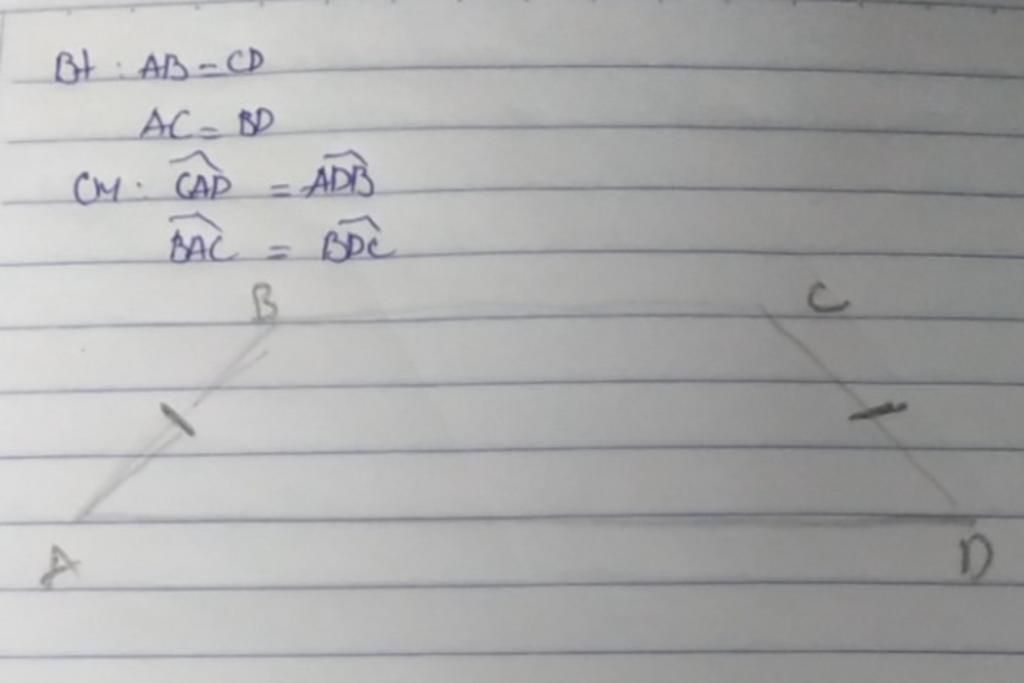 Bt : AB = CD
AC = BD
CM : \widehat{CAD} = \widehat{ADB}
\widehat{BAC} = \widehat{BDC}
B
C
A
D